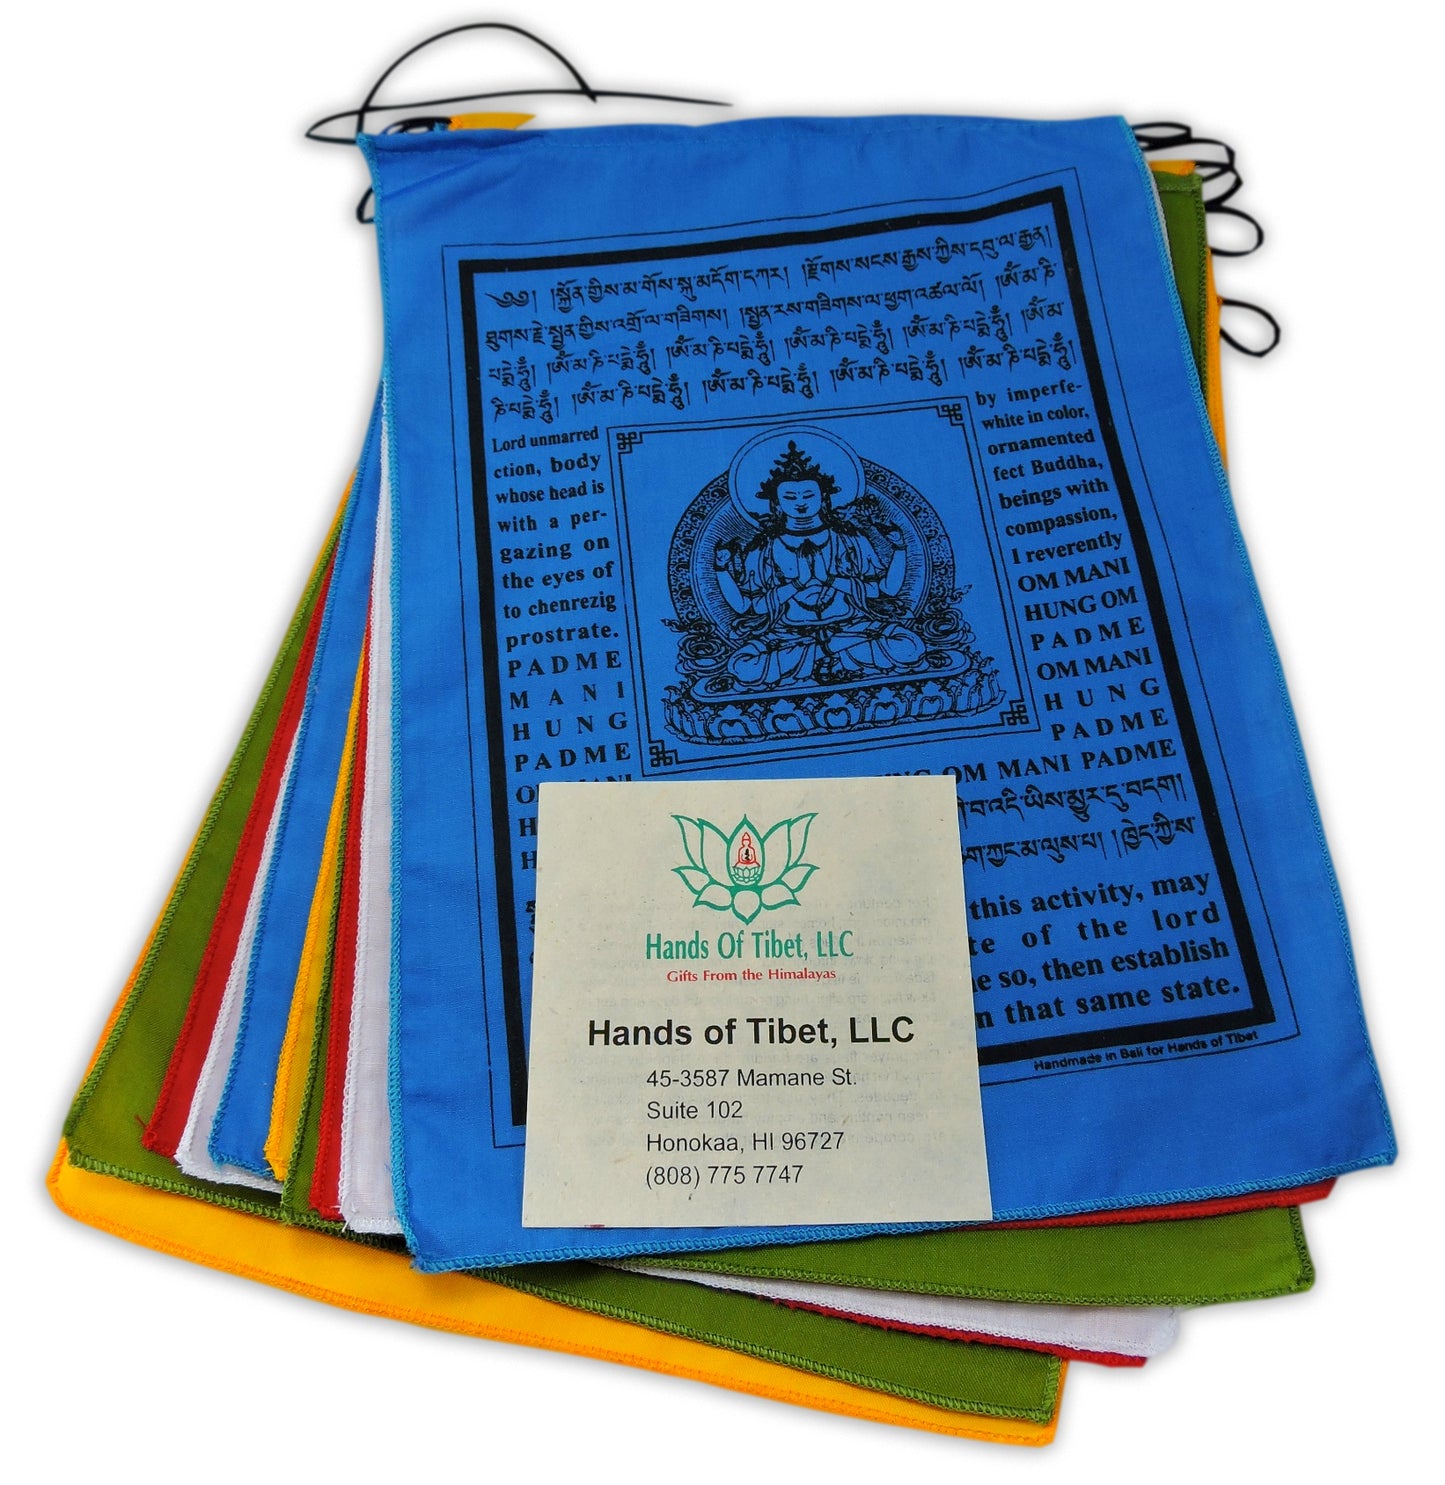 ༄༅། །སྐྱོན་གྱིས་མ་གོས་སྐུ་མདོག་དཀར། །རྫོགས་སངས་རྒྱས་ཀྱིས་དབུ་ལ་རྒྱན།
ཐུགས་རྗེ་སྤྱན་གྱིས་འགྲོ་ལ་གཟིགས། །སྤྱན་རས་གཟིགས་ལ་ཕྱག་འཚལ་ལོ། །ཨོཾ་མ་ཎི་
པདྨེ་ཧཱུྃ། །ཨོཾ་མ་ཎི་པདྨེ་ཧཱུྃ། །ཨོཾ་མ་ཎི་པདྨེ་ཧཱུྃ། །ཨོཾ་མ་ཎི་པདྨེ་ཧཱུྃ། །ཨོཾ་མ་ཎི་པདྨེ་ཧཱུྃ། །ཨོཾ་མ་
ཎི་པདྨེ་ཧཱུྃ། །ཨོཾ་མ་ཎི་པདྨེ་ཧཱུྃ། །ཨོཾ་མ་ཎི་པདྨེ་ཧཱུྃ། །ཨོཾ་མ་ཎི་པདྨེ་ཧཱུྃ། །ཨོཾ་མ་ཎི་པདྨེ་ཧཱུྃ།
Lord unmarred by imperfe-
ction, body white in color,
whose head is ornamented
with a per- fect Buddha,
gazing on beings with
the eyes of compassion,
to chenrezig I reverently
prostrate. OM MANI
PADME HUNG OM
MANI PADME
HUNG OM MANI
PADME HUNG
PADME
OM MANI PADME
འདི་ཡིས་མྱུར་དུ་བདག།
ཀྱང་མ་ལུས་པ། །ཁྱེད་ཀྱི་ས་
this activity, may
of the lord
so, then establish
that same state.
Handmade in Bali for Hands of Tibet
Hands Of Tibet, LLC
Gifts From the Himalayas
Hands of Tibet, LLC
45-3587 Mamane St.
Suite 102
Honokaa, HI 96727
(808) 775 7747